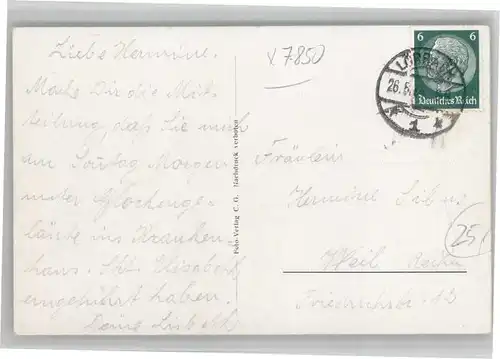 Liebe Hermine.
Mache Dir die Mit-
teilung, daß Sie mich
am Sonntag Morgen
unter Glockenge-
läute ins Kranken-
haus. Skt. Elisabeth
eingeführt haben.
Deine Lisbeth
v. 7850
Feho-Verlag C. O. Nachdruck verboten
6 6
Deutsches Reich
LÖRRACH
26.5.
* 1 *
Fräulein
Hermine
25
Weil
Friedrichstr. 13